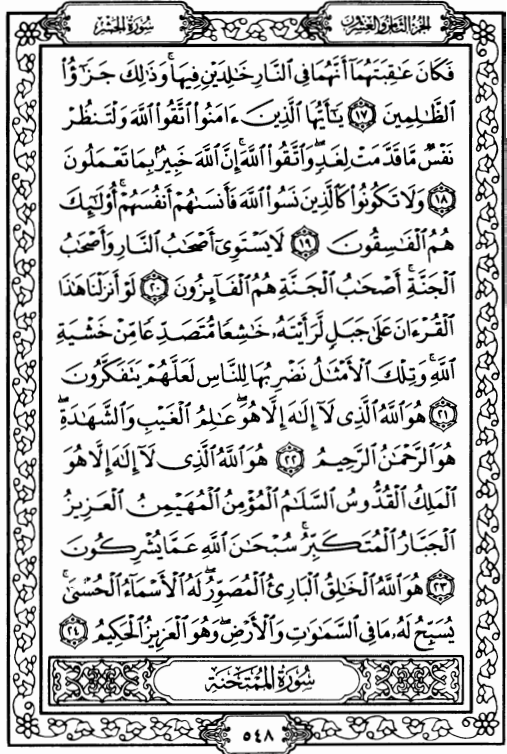 الجزء الثامن والعشرون
سورة الحشر
فَكَانَ عَٰقِبَتَهُمَآ أَنَّهُمَا فِي ٱلنَّارِ خَٰلِدَيْنِ فِيهَا ۚ وَذَٰلِكَ جَزَٰٓؤُا۟
ٱلظَّٰلِمِينَ ١٧ يَٰٓأَيُّهَا ٱلَّذِينَ ءَامَنُوا۟ ٱتَّقُوا۟ ٱللَّهَ وَلْتَنظُرْ
نَفْسٌ مَّا قَدَّمَتْ لِغَدٍ ۖ وَٱتَّقُوا۟ ٱللَّهَ ۚ إِنَّ ٱللَّهَ خَبِيرٌۢ بِمَا تَعْمَلُونَ
١٨ وَلَا تَكُونُوا۟ كَٱلَّذِينَ نَسُوا۟ ٱللَّهَ فَأَنسَىٰهُمْ أَنفُسَهُمْ ۚ أُو۟لَٰٓئِكَ
هُمُ ٱلْفَٰسِقُونَ ١٩ لَا يَسْتَوِىٓ أَصْحَٰبُ ٱلنَّارِ وَأَصْحَٰبُ
ٱلْجَنَّةِ ۚ أَصْحَٰبُ ٱلْجَنَّةِ هُمُ ٱلْفَآئِزُونَ ٢٠ لَوْ أَنزَلْنَا هَٰذَا
ٱلْقُرْءَانَ عَلَىٰ جَبَلٍ لَّرَأَيْتَهُۥ خَٰشِعًا مُّتَصَدِّعًا مِّنْ خَشْيَةِ
ٱللَّهِ ۚ وَتِلْكَ ٱلْأَمْثَٰلُ نَضْرِبُهَا لِلنَّاسِ لَعَلَّهُمْ يَتَفَكَّرُونَ
٢١ هُوَ ٱللَّهُ ٱلَّذِى لَآ إِلَٰهَ إِلَّا هُوَ ۖ عَٰلِمُ ٱلْغَيْبِ وَٱلشَّهَٰدَةِ ۖ
هُوَ ٱلرَّحْمَٰنُ ٱلرَّحِيمُ ٢٢ هُوَ ٱللَّهُ ٱلَّذِى لَآ إِلَٰهَ إِلَّا هُوَ
ٱلْمَلِكُ ٱلْقُدُّوسُ ٱلسَّلَٰمُ ٱلْمُؤْمِنُ ٱلْمُهَيْمِنُ ٱلْعَزِيزُ
ٱلْجَبَّارُ ٱلْمُتَكَبِّرُ ۚ سُبْحَٰنَ ٱللَّهِ عَمَّا يُشْرِكُونَ
٢٣ هُوَ ٱللَّهُ ٱلْخَٰلِقُ ٱلْبَارِئُ ٱلْمُصَوِّرُ ۖ لَهُ ٱلْأَسْمَآءُ ٱلْحُسْنَىٰ ۚ
يُسَبِّحُ لَهُۥ مَا فِى ٱلسَّمَٰوَٰتِ وَٱلْأَرْضِ ۖ وَهُوَ ٱلْعَزِيزُ ٱلْحَكِيمُ ٢٤
سُورَةُ ٱلْمُمْتَحَنَةِ
٥٤٨